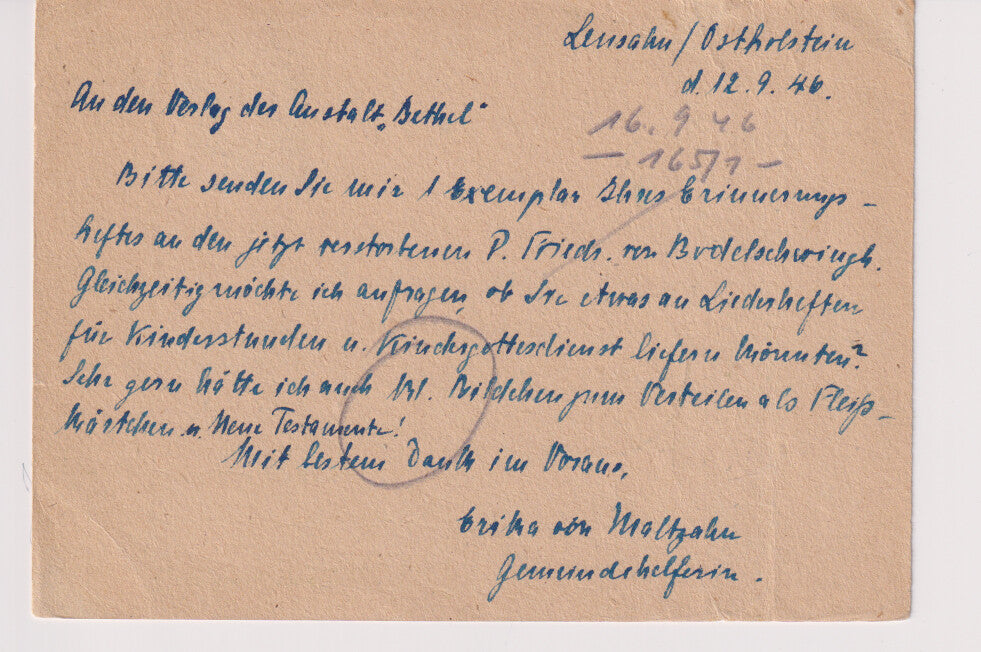 Lensahn/Ostholstein
d. 12. 9. 46.
An den Verlag der Anstalt „Bethel"
16. 9 46
– 165/1 –
Bitte senden Sie mir 1 Exemplar Ihres Erinnerungs-
heftes an den jetzt verstorbenen P. Friedr. von Bodelschwingh.
Gleichzeitig möchte ich anfragen, ob Sie etwas an Liederheften
für Kinderstunden u. Kindergottesdienst liefern könnten?
Sehr gern hätte ich auch kl. Bildchen zum Verteilen als Fleiß-
kärtchen u. Neue Testamente!
Mit bestem Dank im Voraus,
Erika von Maltzahn
Gemeindehelferin.